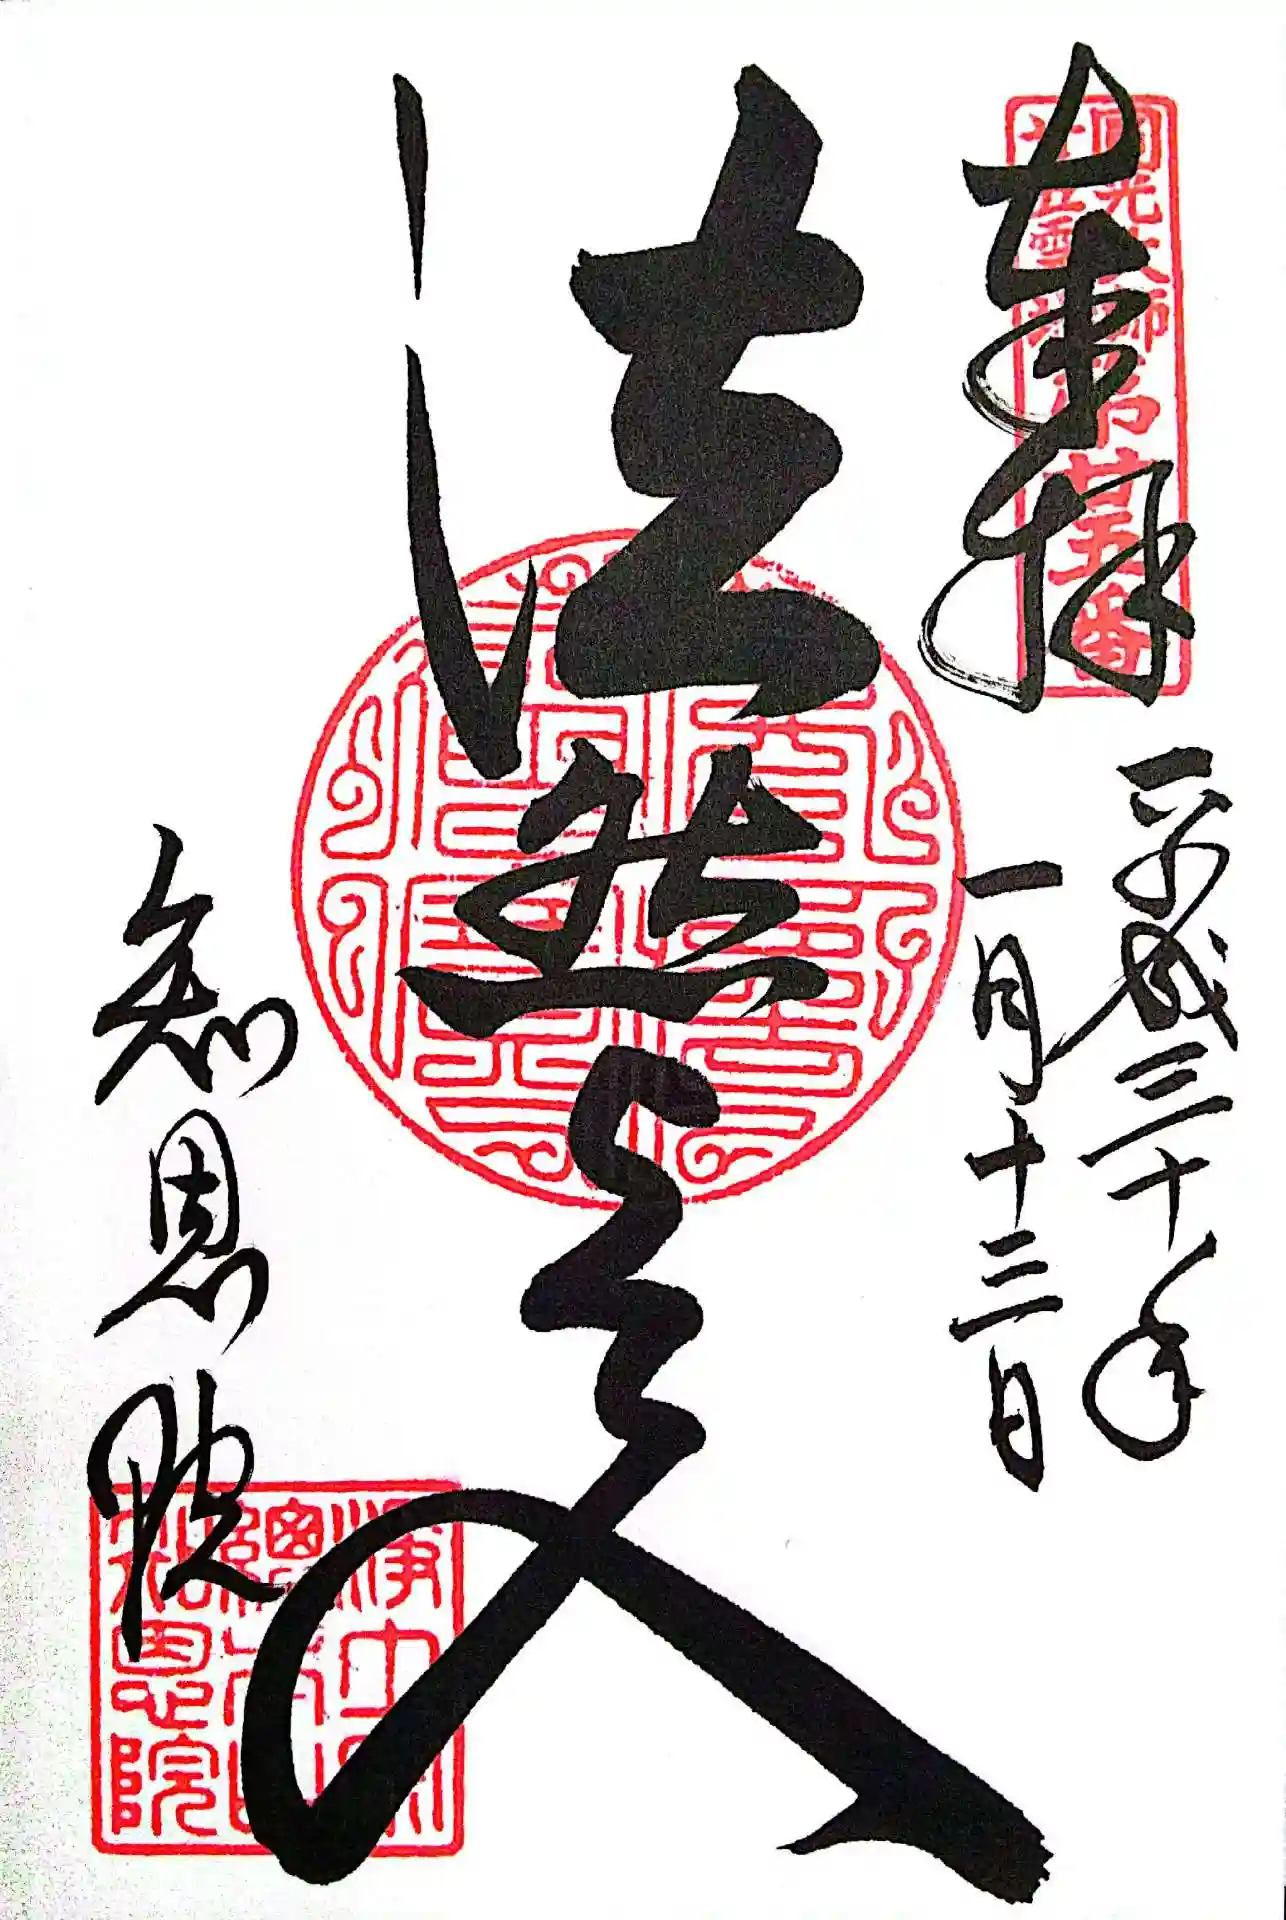 奉拝
圓光大師
廿五霊場
第廿五番
平成三十年
一月十三日
法然上人
知恩院
浄土宗
総本山
知恩院